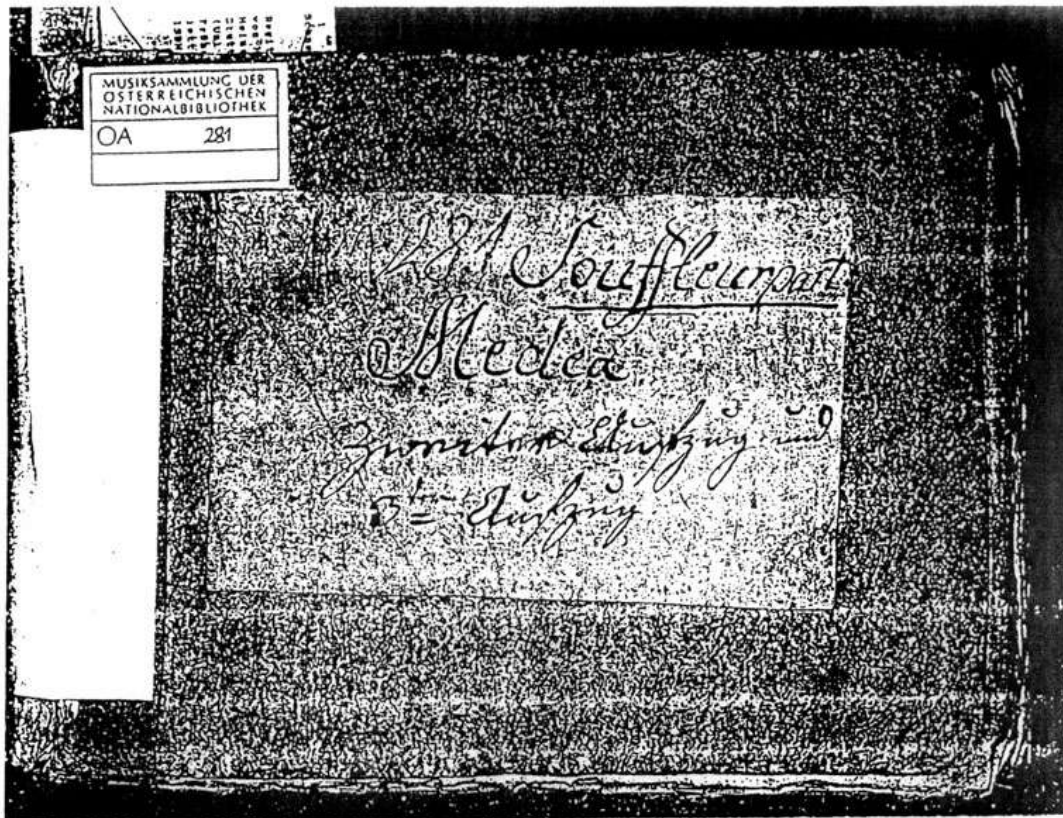 MUSIKSAMMLUNG DER
ÖSTERREICHISCHEN
NATIONALBIBLIOTHEK
OA 281
281 Souffleurpart
Medea
Zweiter Aufzug und
3ter Aufzug